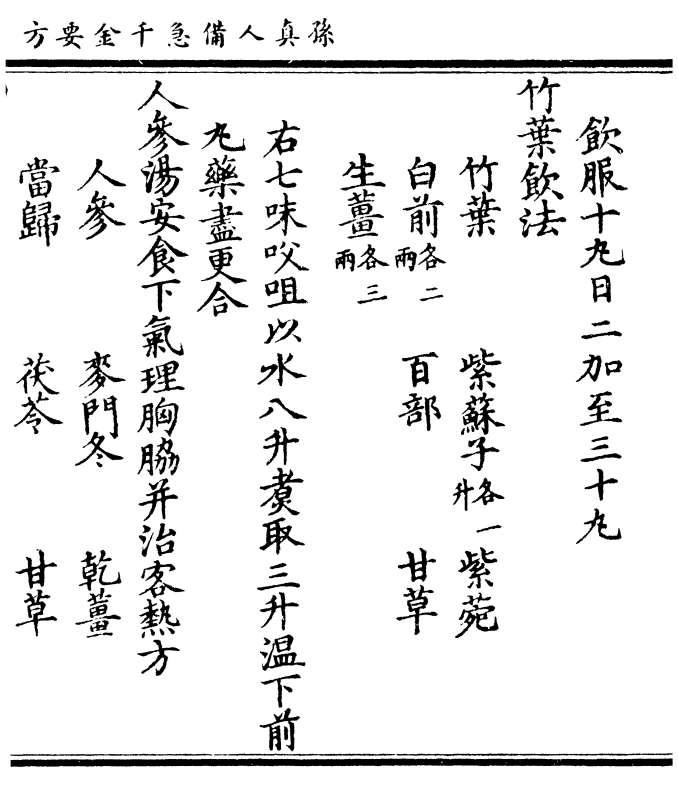 孫真人備急千金要方
飲服十丸日二加至三十丸
竹葉飲法
竹葉 紫蘇子各一升 紫菀
白前各二兩 百部 甘草
生薑各三兩
右七味㕮咀以水八升煑取三升温下前
丸藥盡更合
人參湯安食下氣理胸脇并治客熱方
人參 麥門冬 乾薑
當歸 茯苓 甘草